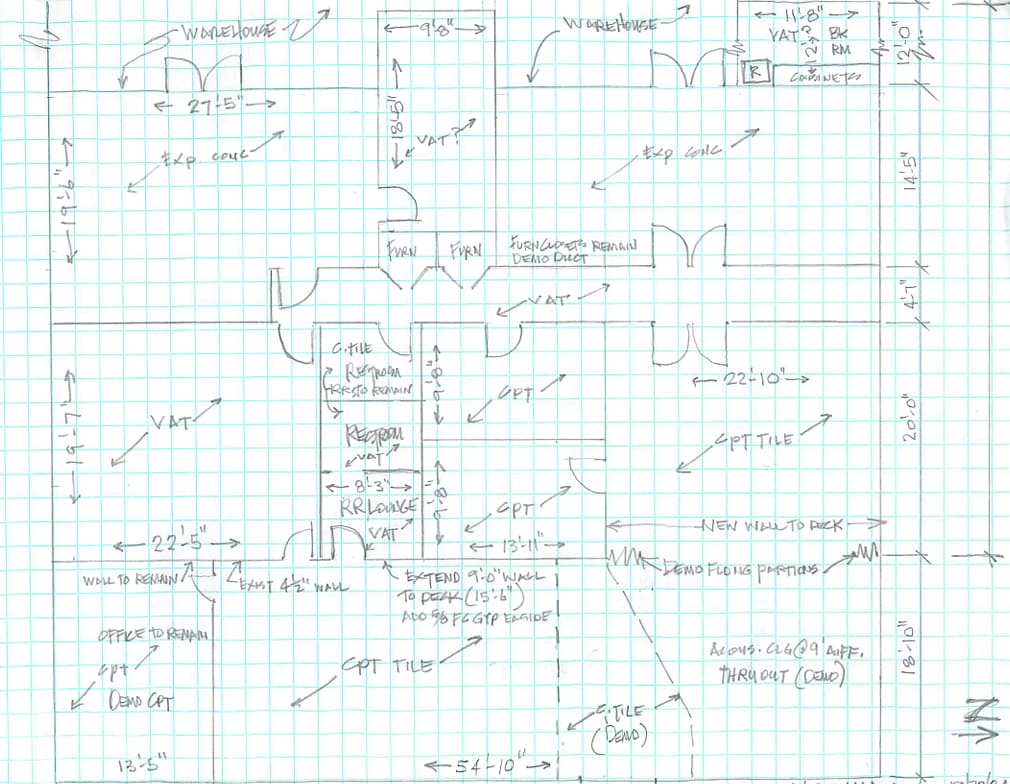 WAREHOUSE
9'-8"
WAREHOUSE
11'-8"
VAT?
BK
RM
12'-0"
R
CABINETS
27'-5"
18'-5"
VAT?
EXP. CONC
EXP CONC
19'-6"
14'-5"
FURN
FURN
FURN CLOSETS REMAIN
DEMO DUCT
VAT
4'-7"
C.TILE
RESTROOM
RR'S TO REMAIN
9'-8"
CPT
22'-10"
VAT
19'-7"
RESTROOM
VAT
CPT TILE
20'-0"
8'-3"
RR LOUNGE
VAT
9'-8"
CPT
13'-11"
NEW WALL TO DECK
22'-5"
WALL TO REMAIN
EXIST 4½" WALL
EXTEND 9'-0" WALL
TO DECK (15'-6")
ADD 5/8 FC GYP EA SIDE
DEMO FLDNG PARTIONS
OFFICE TO REMAIN
CPT
DEMO CPT
CPT TILE
ACOUS. CLG @ 9' AFF.
THRUOUT (DEMO)
18'-10"
C.TILE
(DEMO)
N
13'-5"
54'-10"